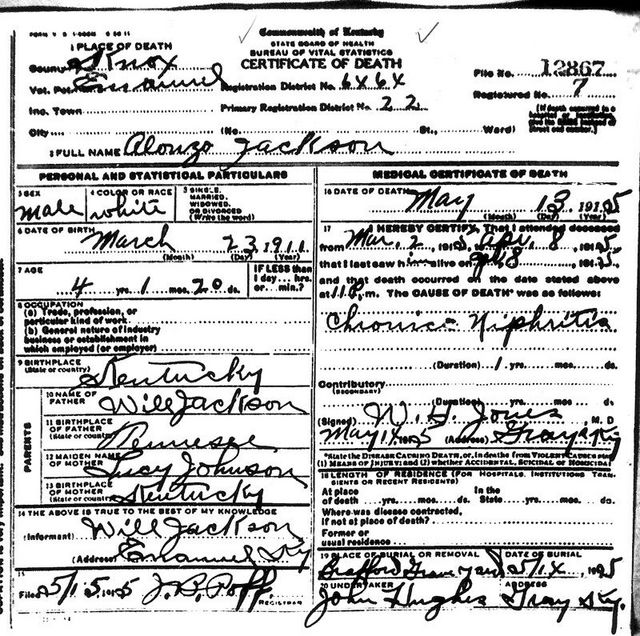 FORM V. S. 1-
Commonwealth of Kentucky
STATE BOARD OF HEALTH
BUREAU OF VITAL STATISTICS
CERTIFICATE OF DEATH
1 PLACE OF DEATH
County Knox
Vot. Pct. Emanuel
Inc. Town
City
Registration District No. 6x6x
Primary Registration District No. 22
(No. St., Ward)
File No. 12867
Registered No. 7
[If death occurred in a hospital or institution, give its NAME instead of street and number.]
2 FULL NAME Alonzo Jackson
PERSONAL AND STATISTICAL PARTICULARS
3 SEX male
4 COLOR OR RACE white
5 SINGLE, MARRIED, WIDOWED, OR DIVORCED (Write the word)
6 DATE OF BIRTH March 23, 1911
(Month) (Day) (Year)
7 AGE
4 yrs. 1 mos. 20 ds.
IF LESS than 1 day... hrs. or... min.?
8 OCCUPATION
(a) Trade, profession, or particular kind of work
(b) General nature of industry business or establishment in which employed (or employer)
9 BIRTHPLACE (State or country) Kentucky
PARENTS
10 NAME OF FATHER Will Jackson
11 BIRTHPLACE OF FATHER (State or country) Tennessee
12 MAIDEN NAME OF MOTHER Lucy Johnson
13 BIRTHPLACE OF MOTHER (State or country) Kentucky
14 THE ABOVE IS TRUE TO THE BEST OF MY KNOWLEDGE
(Informant) Will Jackson
(Address) Emanuel Ky
15
Filed 5/15 1915 J. B. Poff
REGISTRAR
MEDICAL CERTIFICATE OF DEATH
16 DATE OF DEATH May 13, 1915
(Month) (Day) (Year)
17 I HEREBY CERTIFY, That I attended deceased
from Mar. 2 1915, Apr. 8 1915
that I last saw him alive on Apl 8 1915
and that death occurred on the date stated above
at 11 P. m. The CAUSE OF DEATH* was as follows:
Chronic Niphritis
(Duration) 1 yrs. mos. ds.
Contributory
(SECONDARY)
(Duration) yrs. mos. ds.
(Signed) W. H. Jones M. D
May 1915 (Address) Gray Ky
*State the DISEASE CAUSING DEATH, or, in deaths from VIOLENT CAUSES state (1) MEANS OF INJURY; and (2) whether ACCIDENTAL, SUICIDAL or HOMICIDAL
18 LENGTH OF RESIDENCE (FOR HOSPITALS, INSTITUTIONS, TRANSIENTS OR RECENT RESIDENTS)
At place of death yrs. mos. ds. In the State yrs. mos. ds.
Where was disease contracted, if not at place of death?
Former or usual residence
19 PLACE OF BURIAL OR REMOVAL DATE OF BURIAL
Grave yard 5/1x 1915
20 UNDERTAKER ADDRESS
John Hughes Gray Ky.